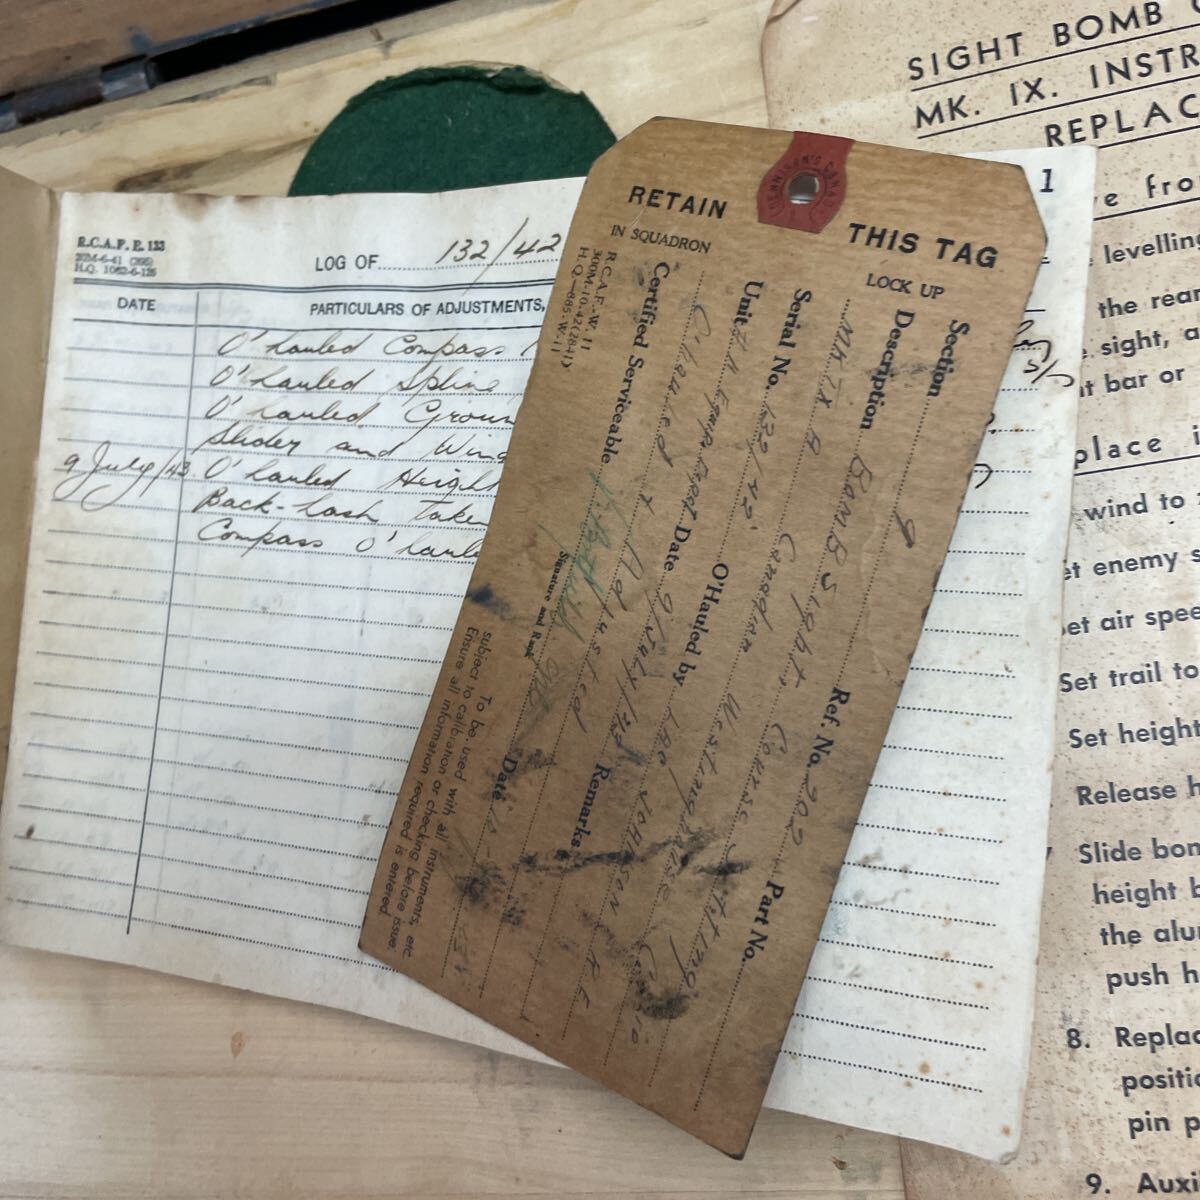 R.C.A.F. E. 133
H.Q. 1062-6-126
LOG OF 132/42
1
DATE
PARTICULARS OF ADJUSTMENTS,
O'hauled Compass
O'hauled Spline
O'hauled Groun
Slider and Wind
9 July/43 O'hauled Height
Back-Lash taken
Compass O'haule
RETAIN THIS TAG
IN SQUADRON LOCK UP
Section 9
Description BomB Sight, Course Setting
MK IX A Ref. No. 202 Part No.
Serial No. 132/42 Canadian Westinghouse Co
Unit 11 Equip. Depot O'Hauled by Lee Johnson
O'hauled & Adjusted Date 9/July/43 Remarks
Certified Serviceable
Signature and Rank Date
To be used with all instruments, etc.
subject to calibration or checking before issue.
Ensure all information required is entered.
R.C.A.F.-W. 11
300M-10-42(2841)
H.Q.-885-W-11
SIGHT BOMB
MK. IX. INSTR
REPLAC
e fro
levelling
the rear
sight, a
t bar or
place i
wind to
et enemy s
et air spee
Set trail to
Set height
Release h
Slide bom
height b
the alu
push h
8. Replac
positio
pin p
9. Auxi